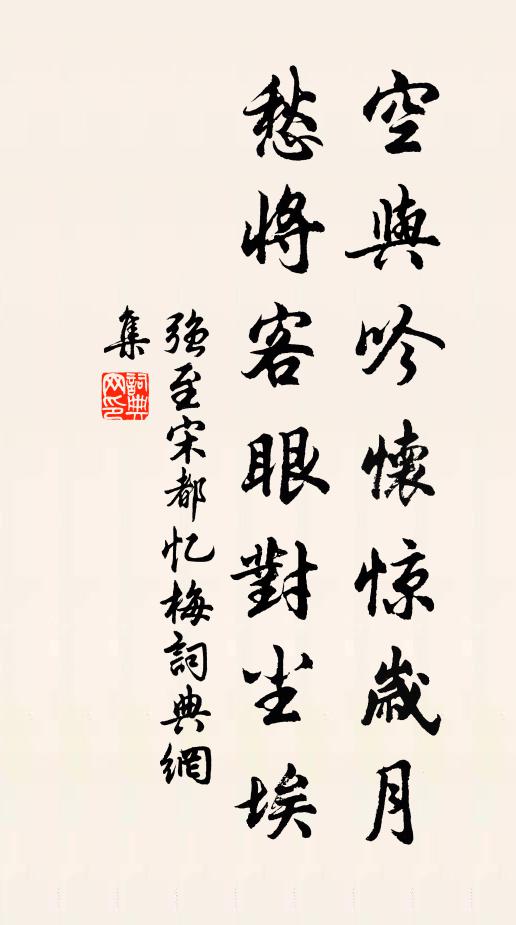 空與吟懷惊歲月
愁將客眼對尘埃
强至宋都忆梅詞典網
集
詞典
网印